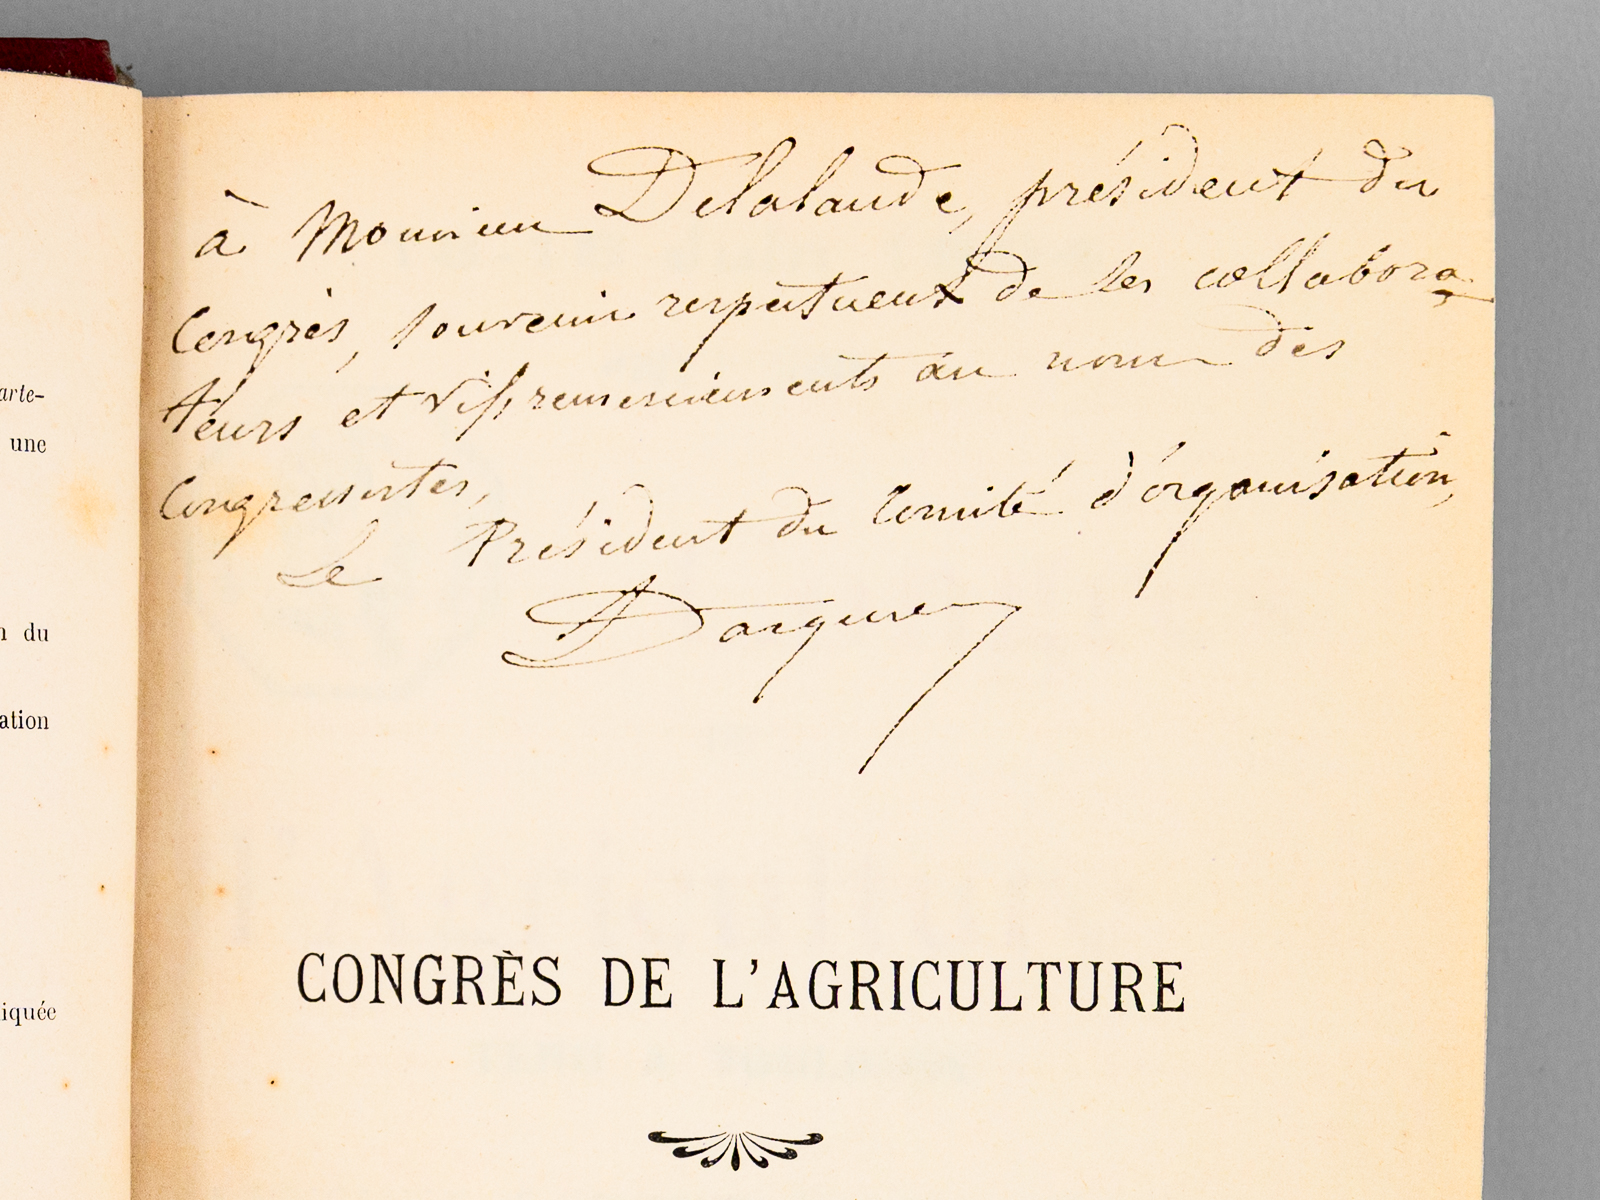 arte-
une
n du
ation
iquée
à Monsieur Delalande, président du
Congrès, souvenir respectueux de ses collabora-
teurs et vifs remerciements au nom des
Congressistes,
Le Président du Comité d'organisation,
CONGRÈS DE L'AGRICULTURE